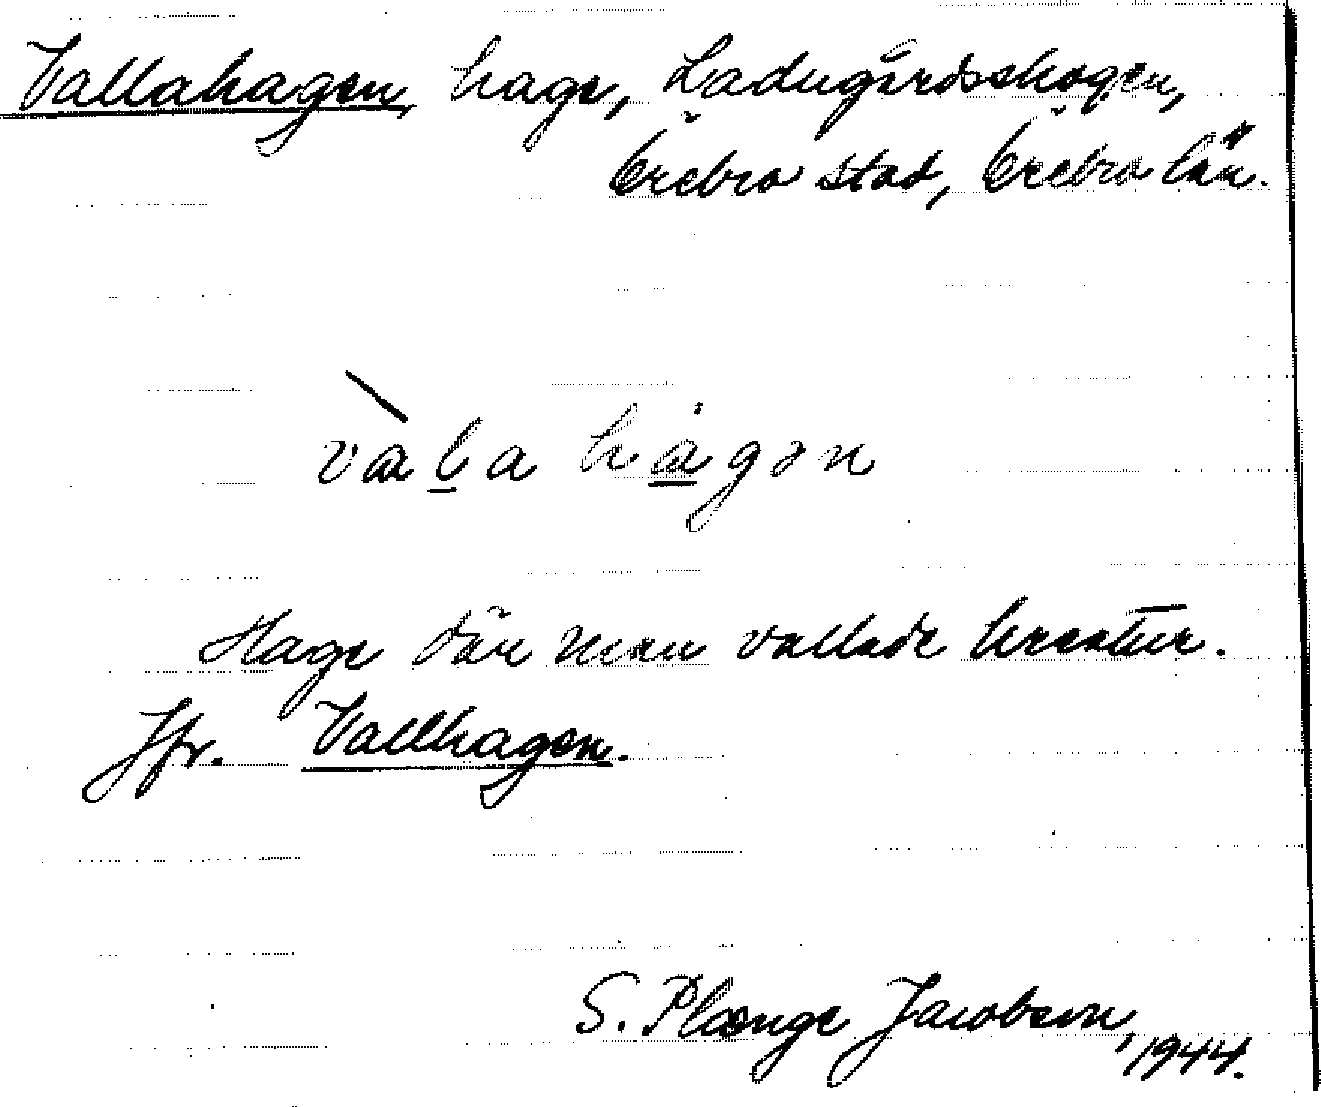 Vallahagen, hage, Ladugårdsskogen,
Örebro stad, Örebro län.
vala hagən
Hage där man vallade kreatur.
Jfr. Vallhagen.
S. Plænge Jacobsen,
1944.